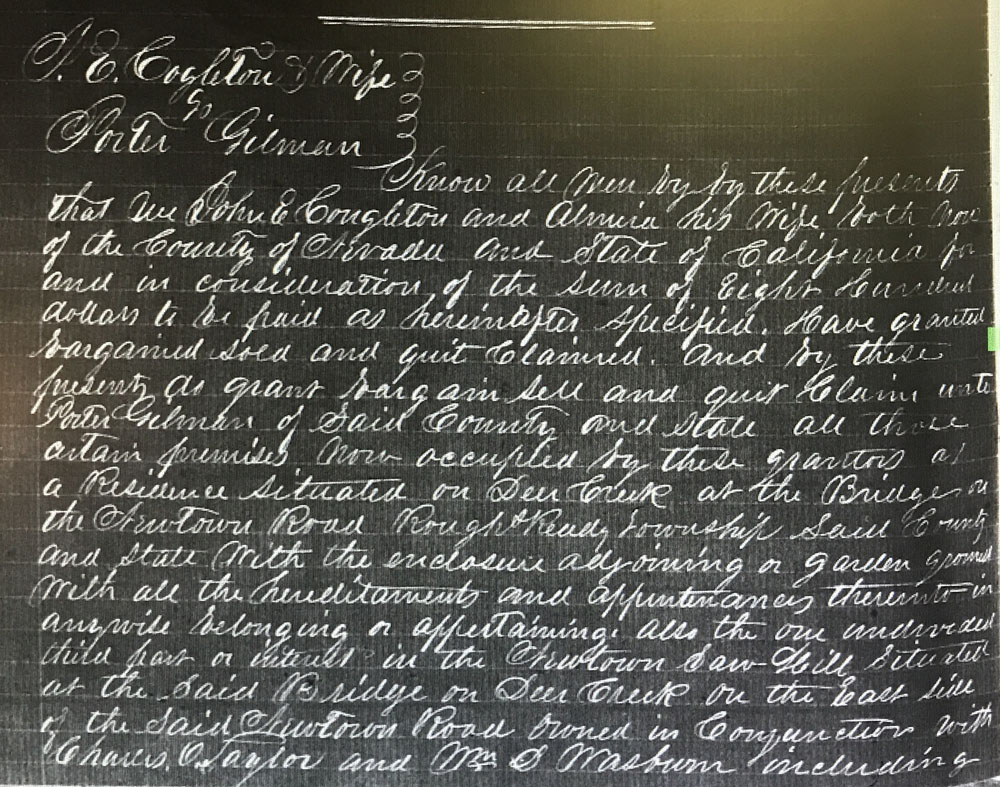 J. E. Cogleton & Wife
to
Porter Gilman
Know all Men by by these presents
that We John E Congleton and Almira his Wife, both Now
of the County of Nevada and State of California for
and in consideration of the sum of Eight Hundred
dollars to be paid as hereinafter specified. Have granted
bargained sold and quit Claimed. And by these
presents do grant bargain sell and quit Claim unto
Porter Gilman of Said County and State all those
certain premises Now occupied by these grantors as
a Residence situated on Deer Creek at the Bridge on
the Newtown Road Rough & Ready township Said County
and State With the enclosure adjoining or garden ground
With all the hereditaments and appurtenances thereunto in
anywise belonging or appertaining. also the one undivided
third part or interest in the Newtown Saw Mill Situated
at the Said Bridge on Deer Creek on the East side
of the Said Newtown Road Owned in Conjunction with
Charles. O. Taylor and Wm S Wasburn including